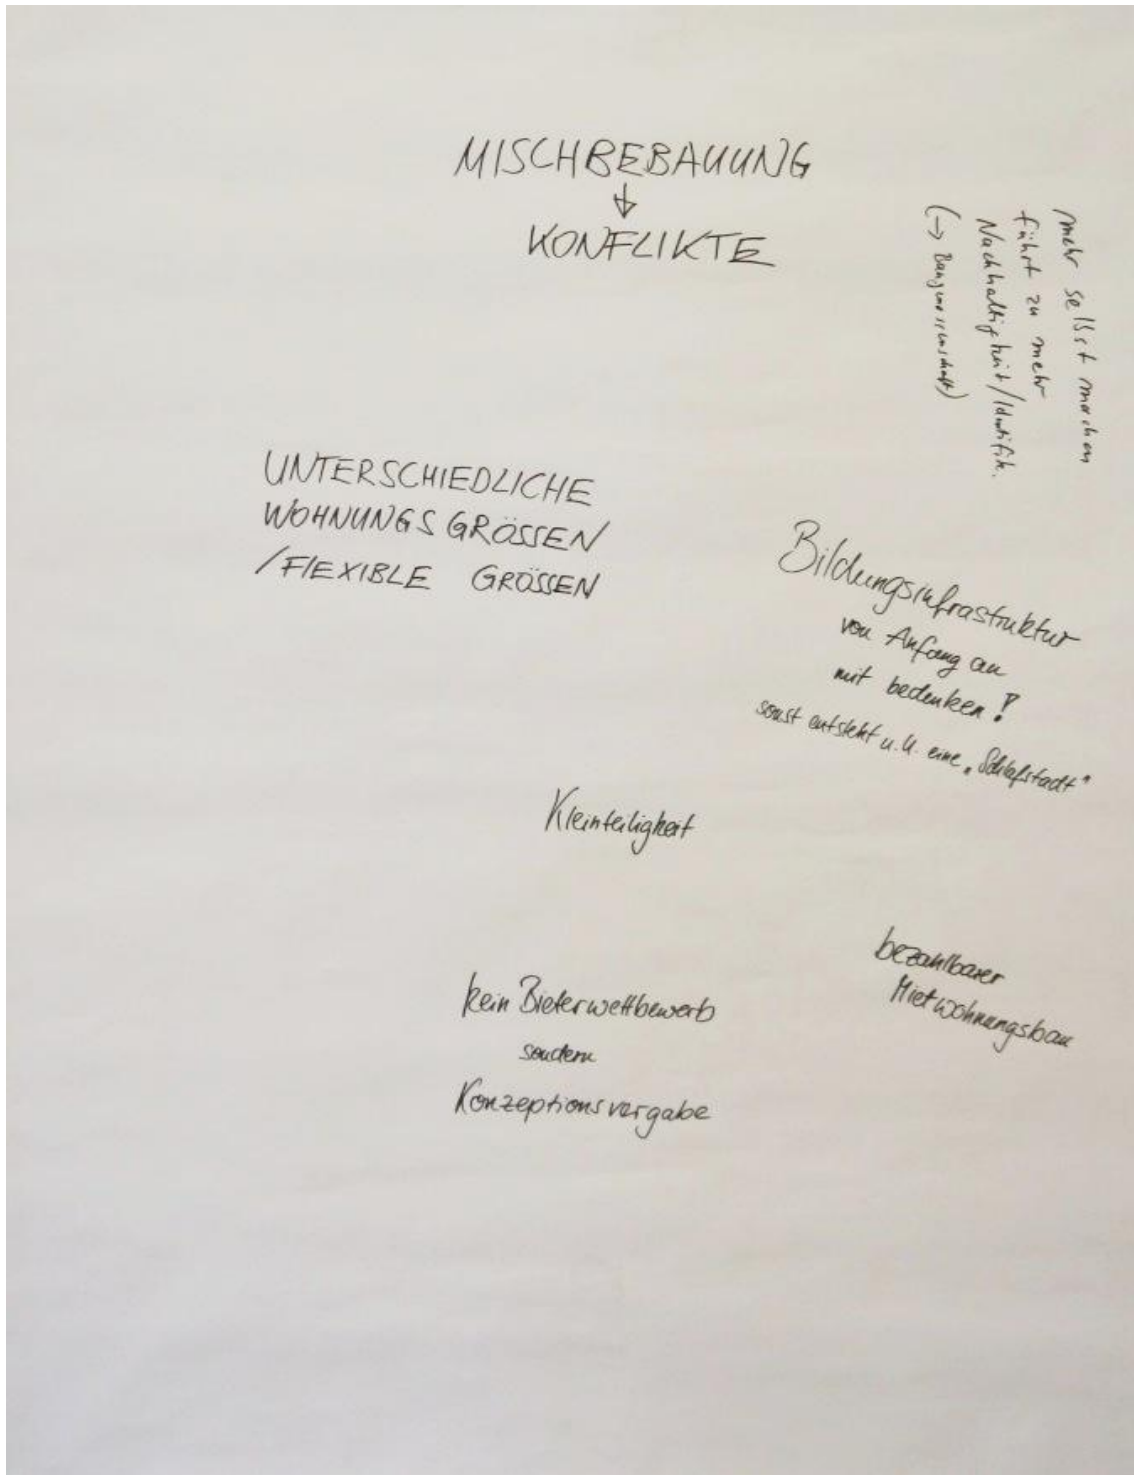 MISCHBEBAUUNG
↓
KONFLIKTE
mehr selbst machen
führt zu mehr
Nachhaltigkeit/Identifik.
(→ Baugenossenschaft)
UNTERSCHIEDLICHE
WOHNUNGSGRÖSSEN/
/FLEXIBLE GRÖSSEN
Bildungsinfrastruktur
von Anfang an
mit bedenken!
sonst entsteht u.U. eine „Schlafstadt"
Kleinteiligkeit
bezahlbarer
Mietwohnungsbau
kein Bieterwettbewerb
sondern
Konzeptionsvergabe